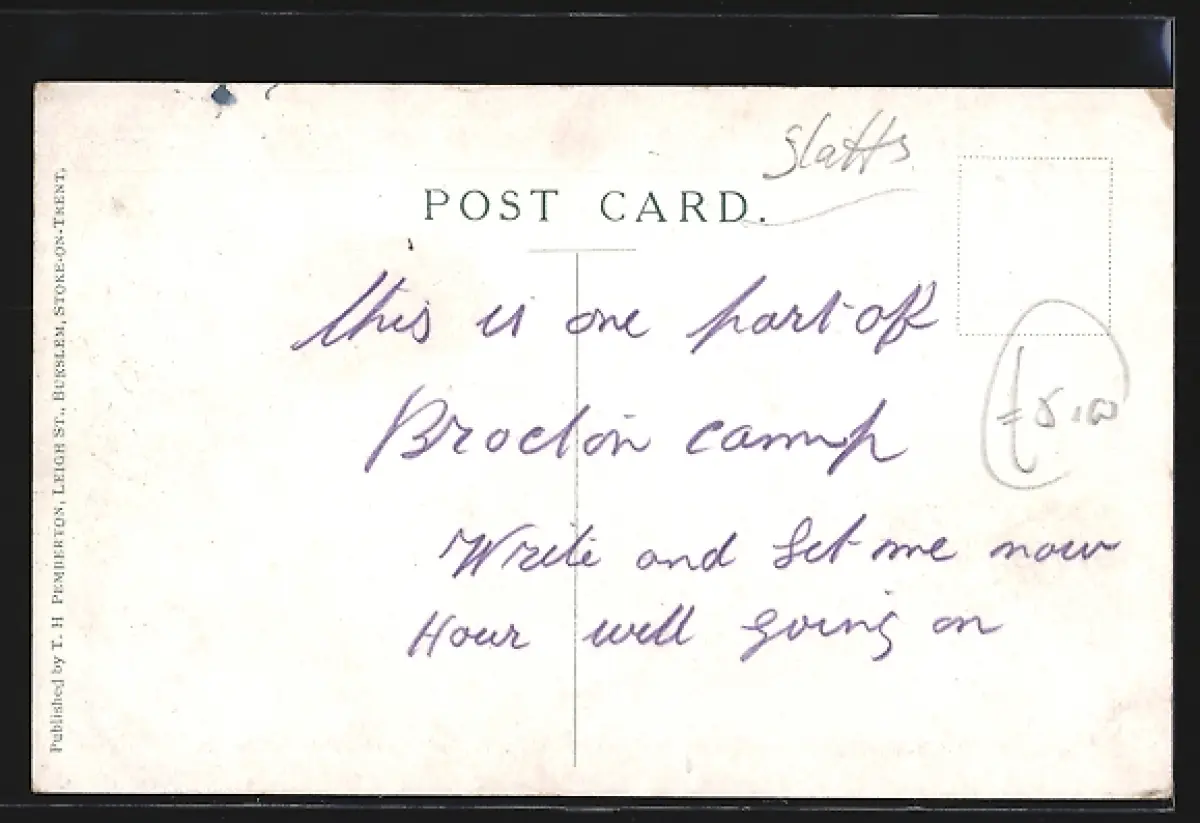 Statts
POST CARD.
this is one part of
Brocton camp
Write and Let me now
Hour will going on
£5.00
Published by T. H PEMBERTON, LEIGH ST., BURSLEM, STOKE-ON-TRENT,